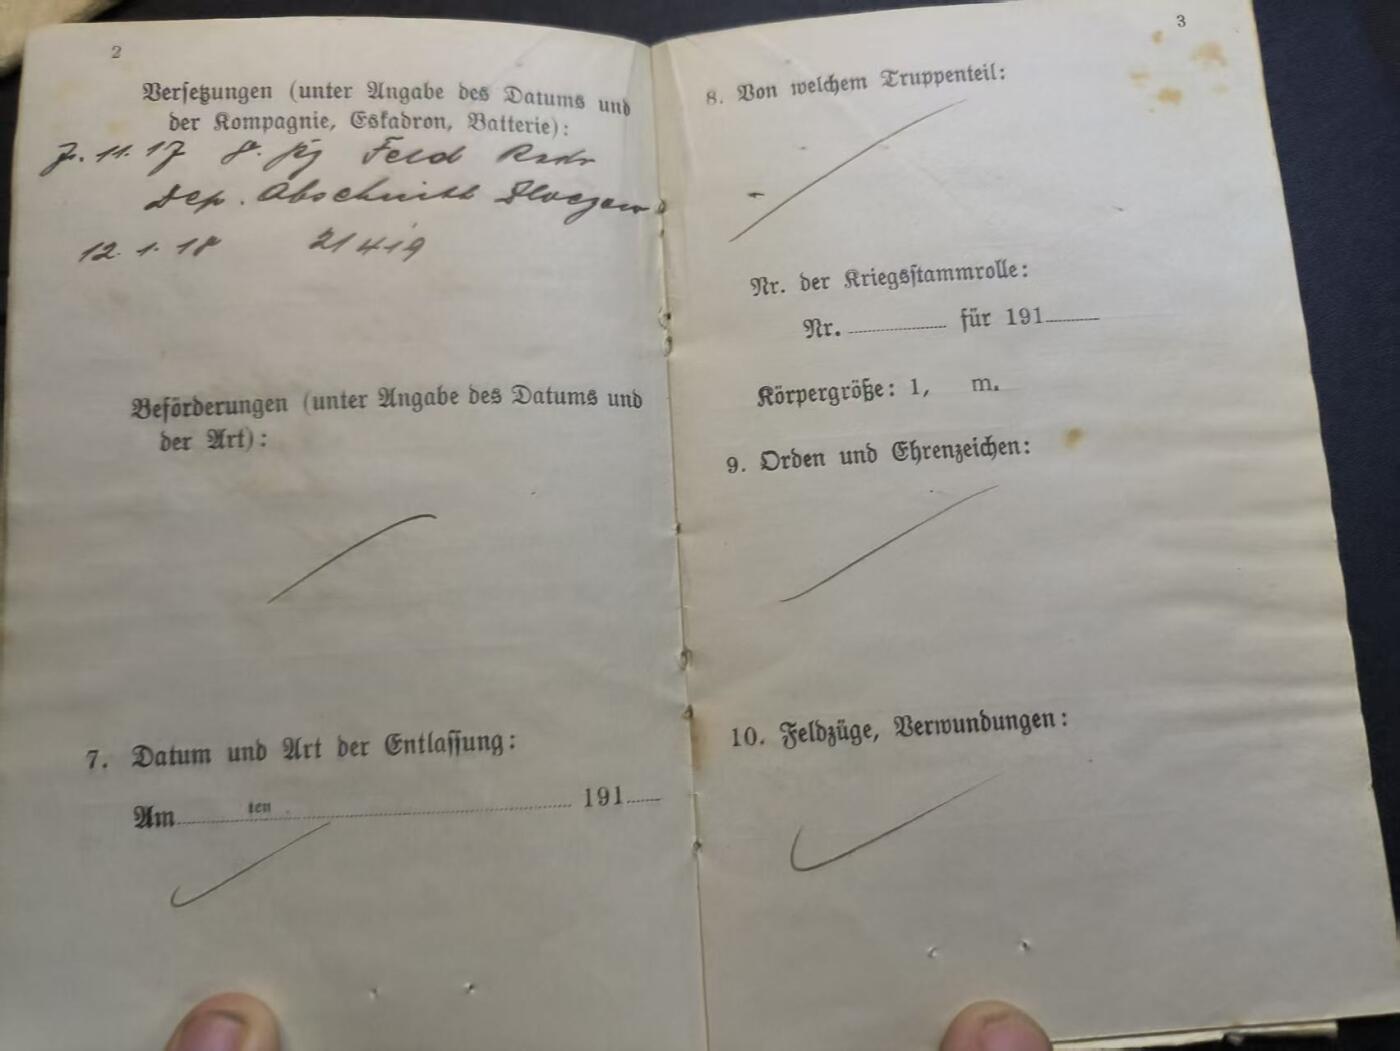 2
Versetzungen (unter Angabe des Datums und
der Kompagnie, Eskadron, Batterie):
7. 11. 17 Feld Rekr
Dep. Abschnitt
12. 1. 18 21419
Beförderungen (unter Angabe des Datums und
der Art):
7. Datum und Art der Entlassung:
Am ten 191
3
8. Von welchem Truppenteil:
Nr. der Kriegsstammrolle:
Nr. für 191
Körpergröße: 1, m.
9. Orden und Ehrenzeichen:
10. Feldzüge, Verwundungen: